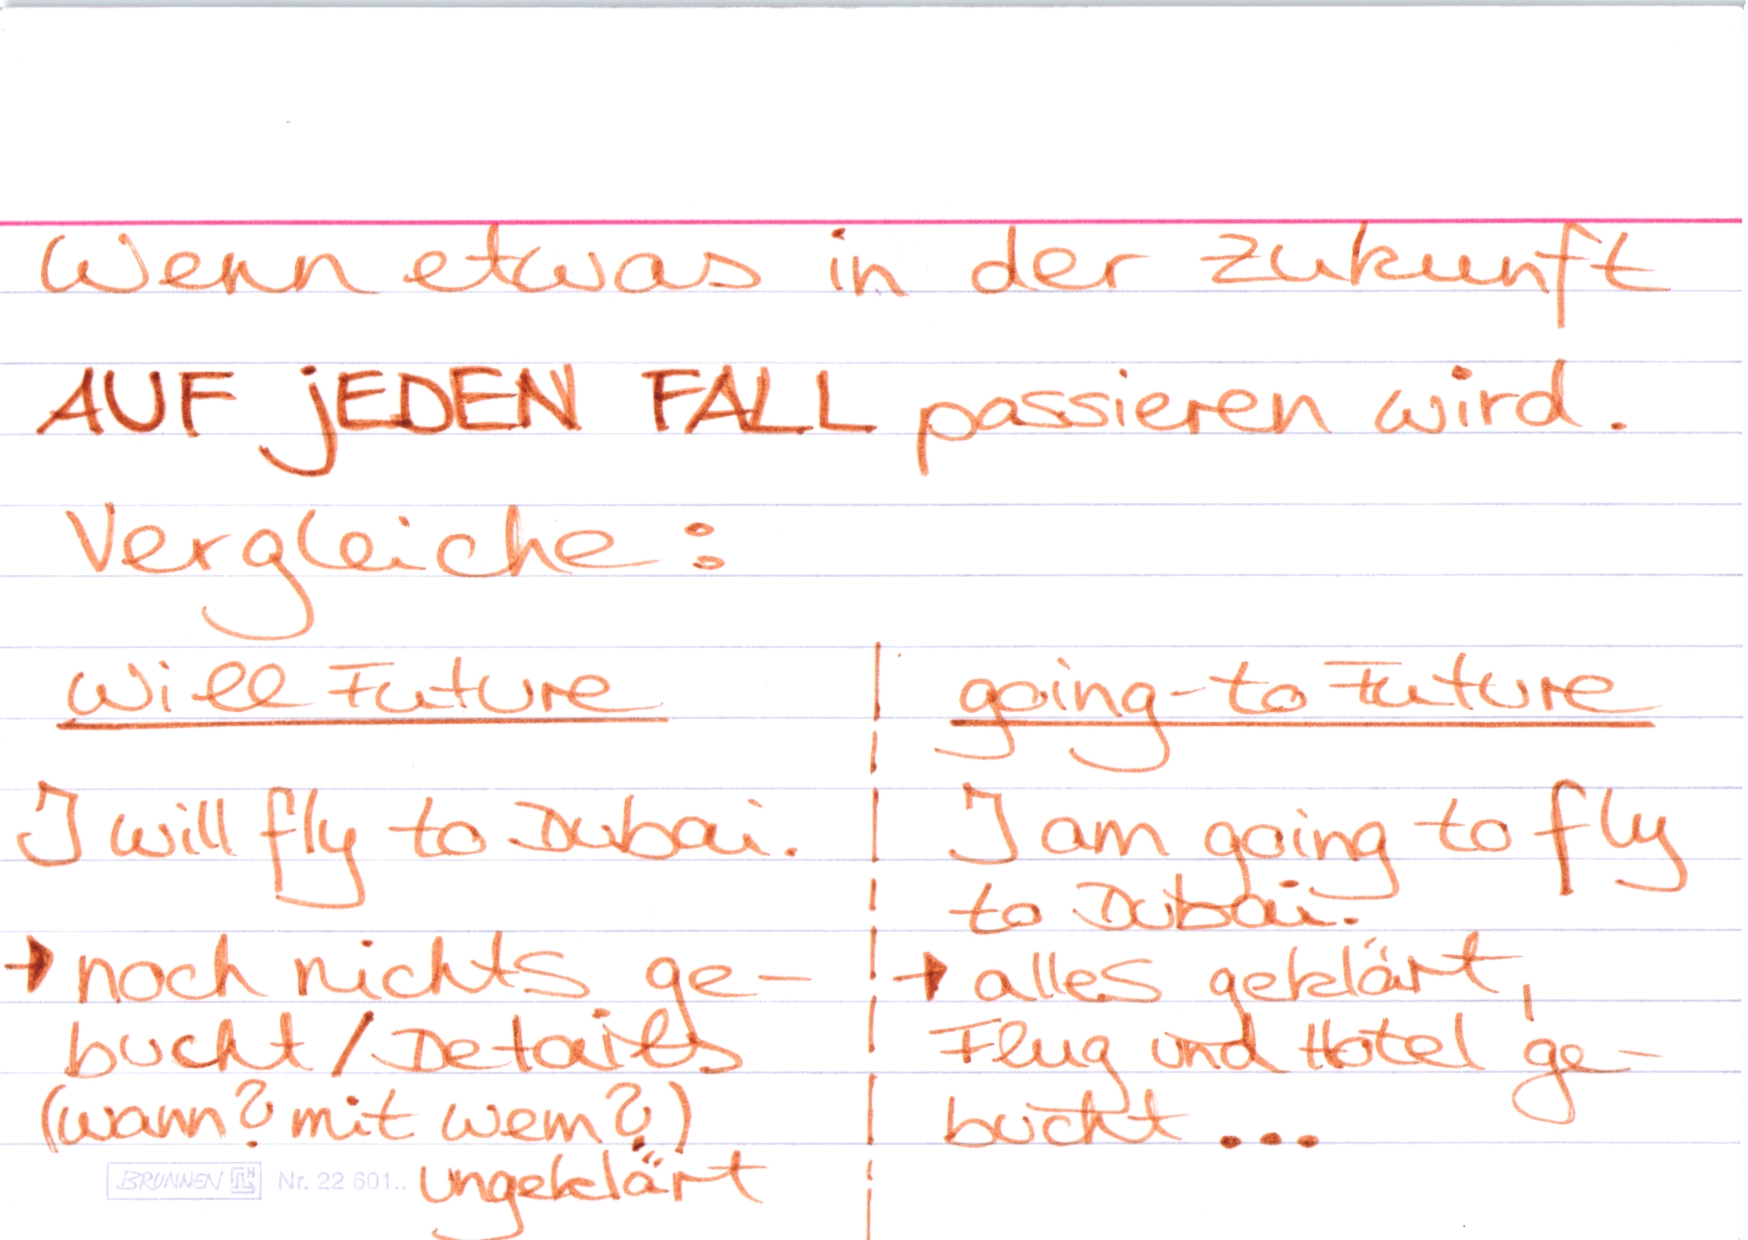 Wenn etwas in der Zukunft
AUF jEDEN FALL passieren wird.
Vergleiche:
Will Future
I will fly to Dubai.
→ noch nichts ge-
bucht/Details
(wann? mit wem?)
ungeklärt
going-to Future
I am going to fly
to Dubai.
→ alles geklärt,
Flug und Hotel ge-
bucht ...
BRUNNEN Nr. 22 601..